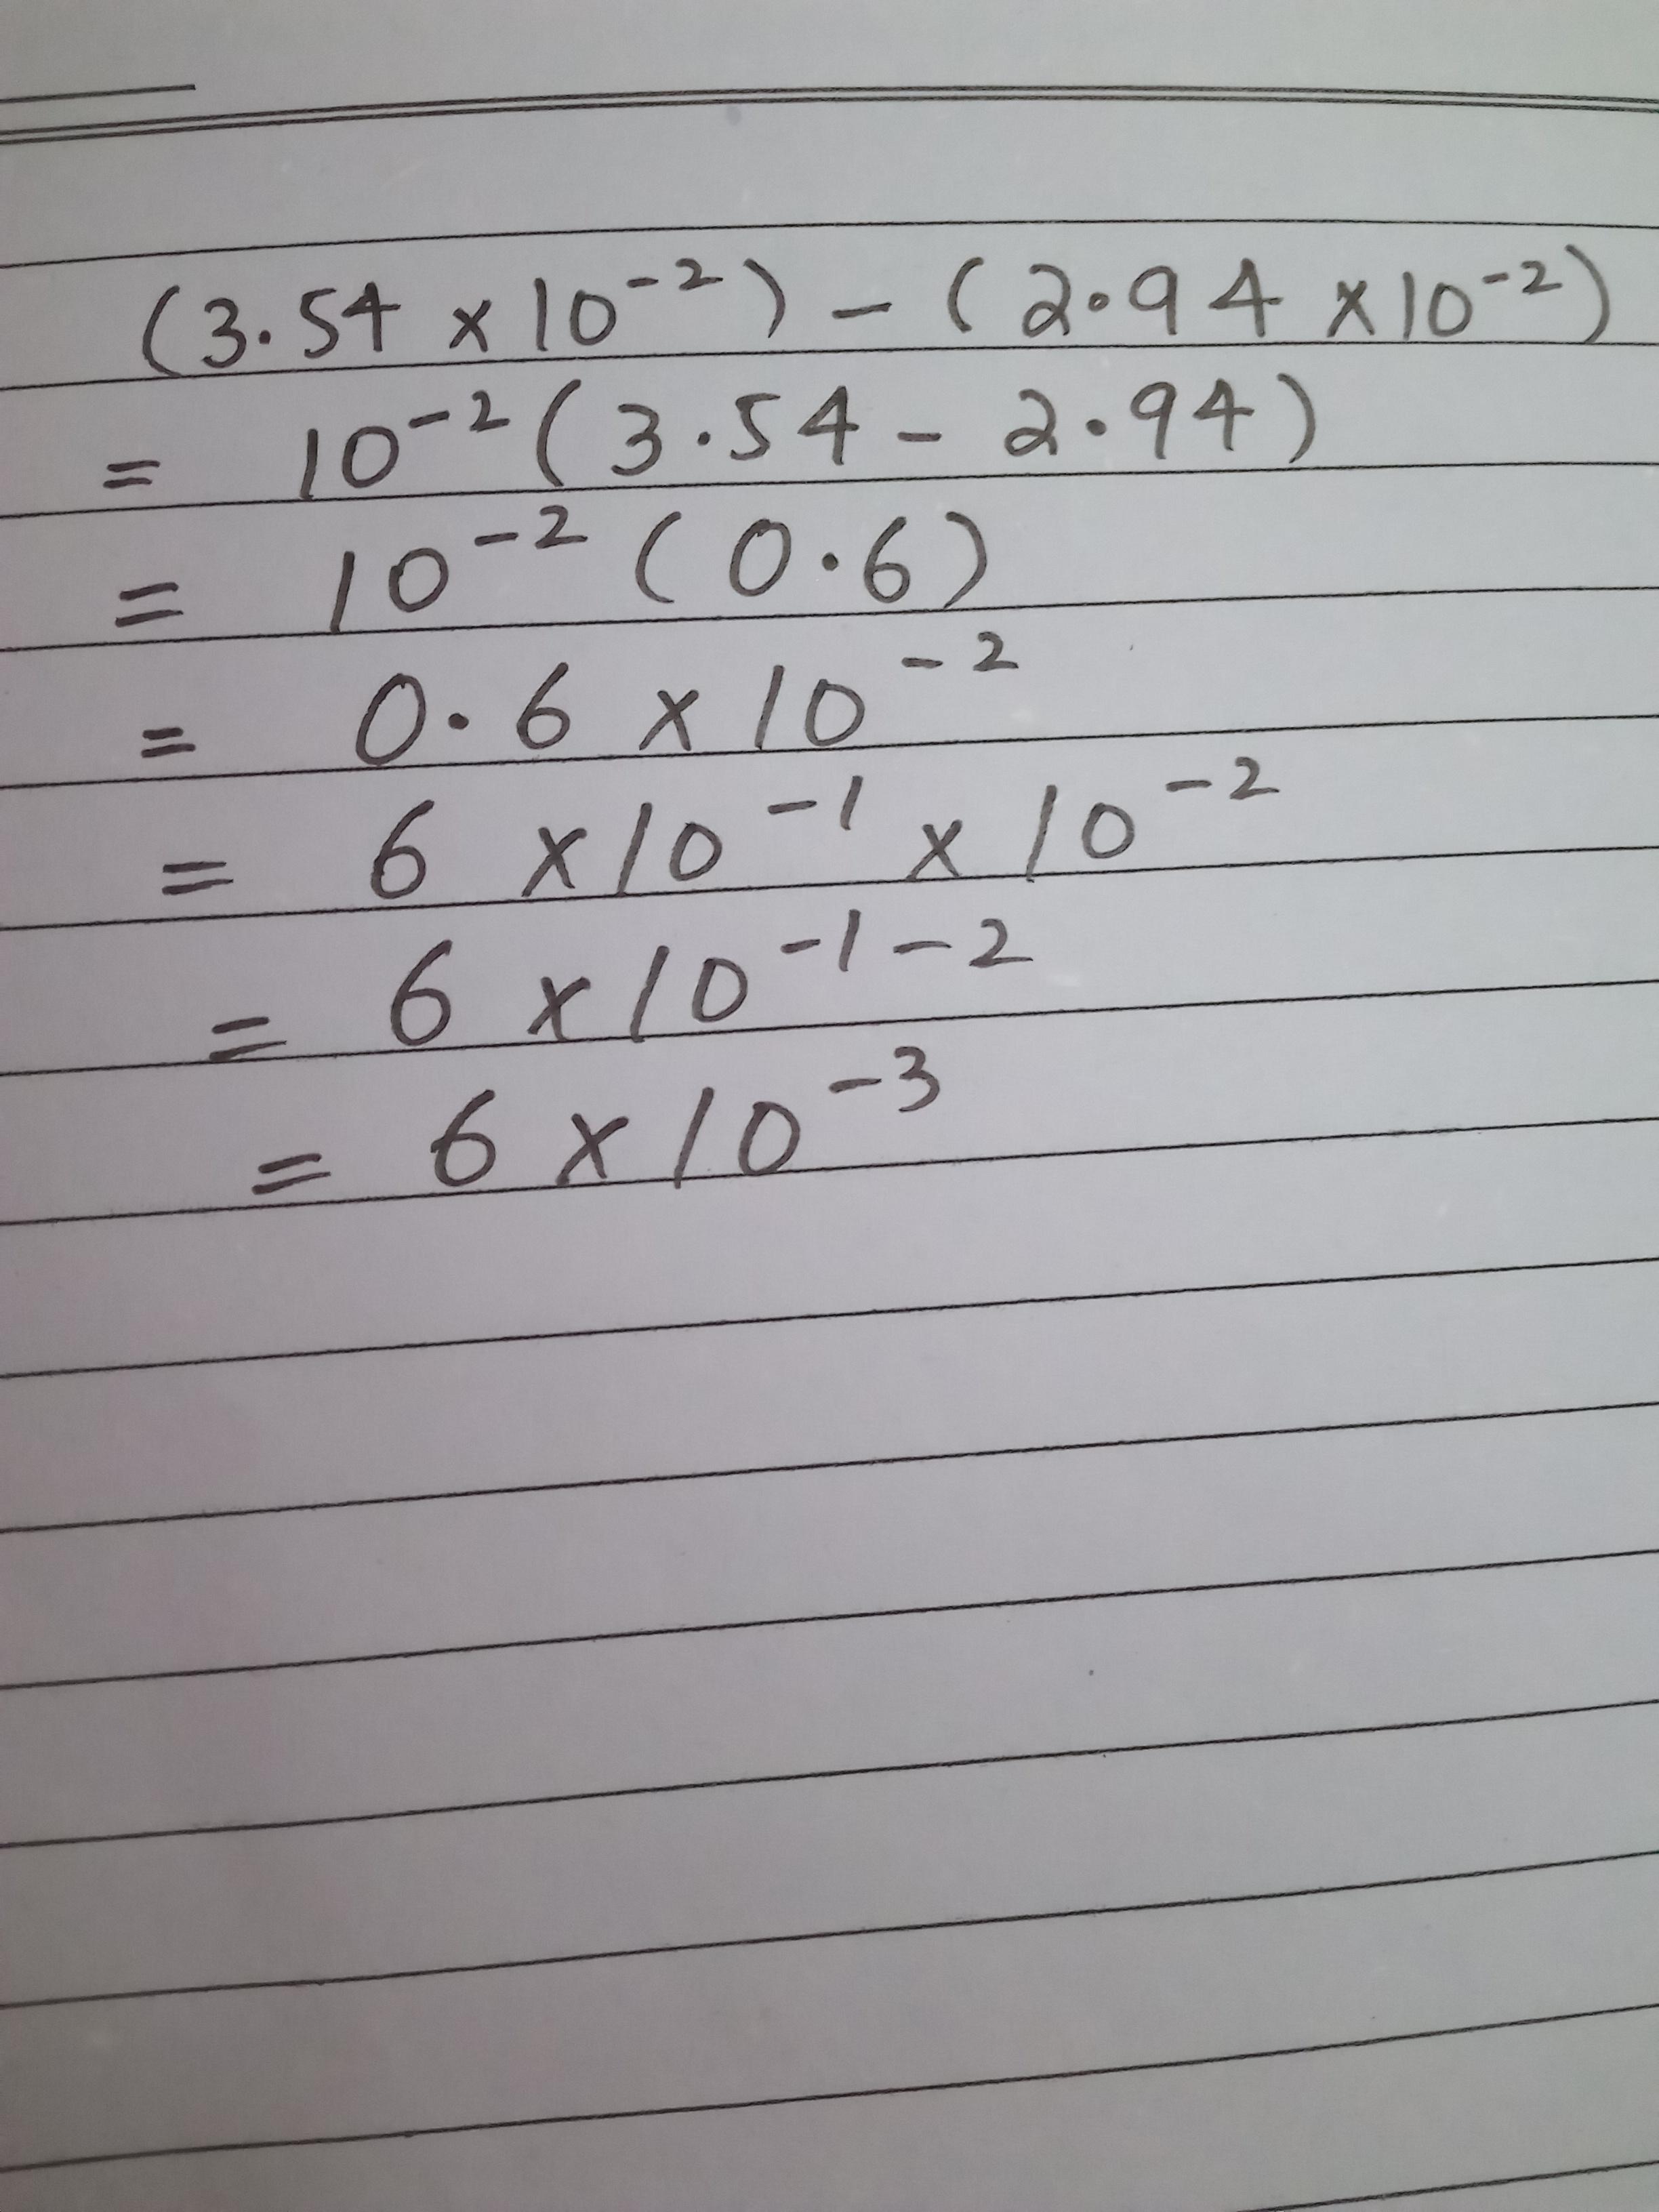 (3.54 × 10⁻²) - (2.94 × 10⁻²)
= 10⁻² (3.54 - 2.94)
= 10⁻² (0.6)
= 0.6 × 10⁻²
= 6 × 10⁻¹ × 10⁻²
= 6 × 10⁻¹⁻²
= 6 × 10⁻³